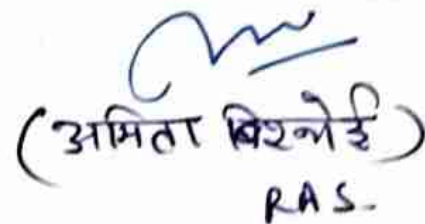 (अमिता बिश्नोई)
RAS.